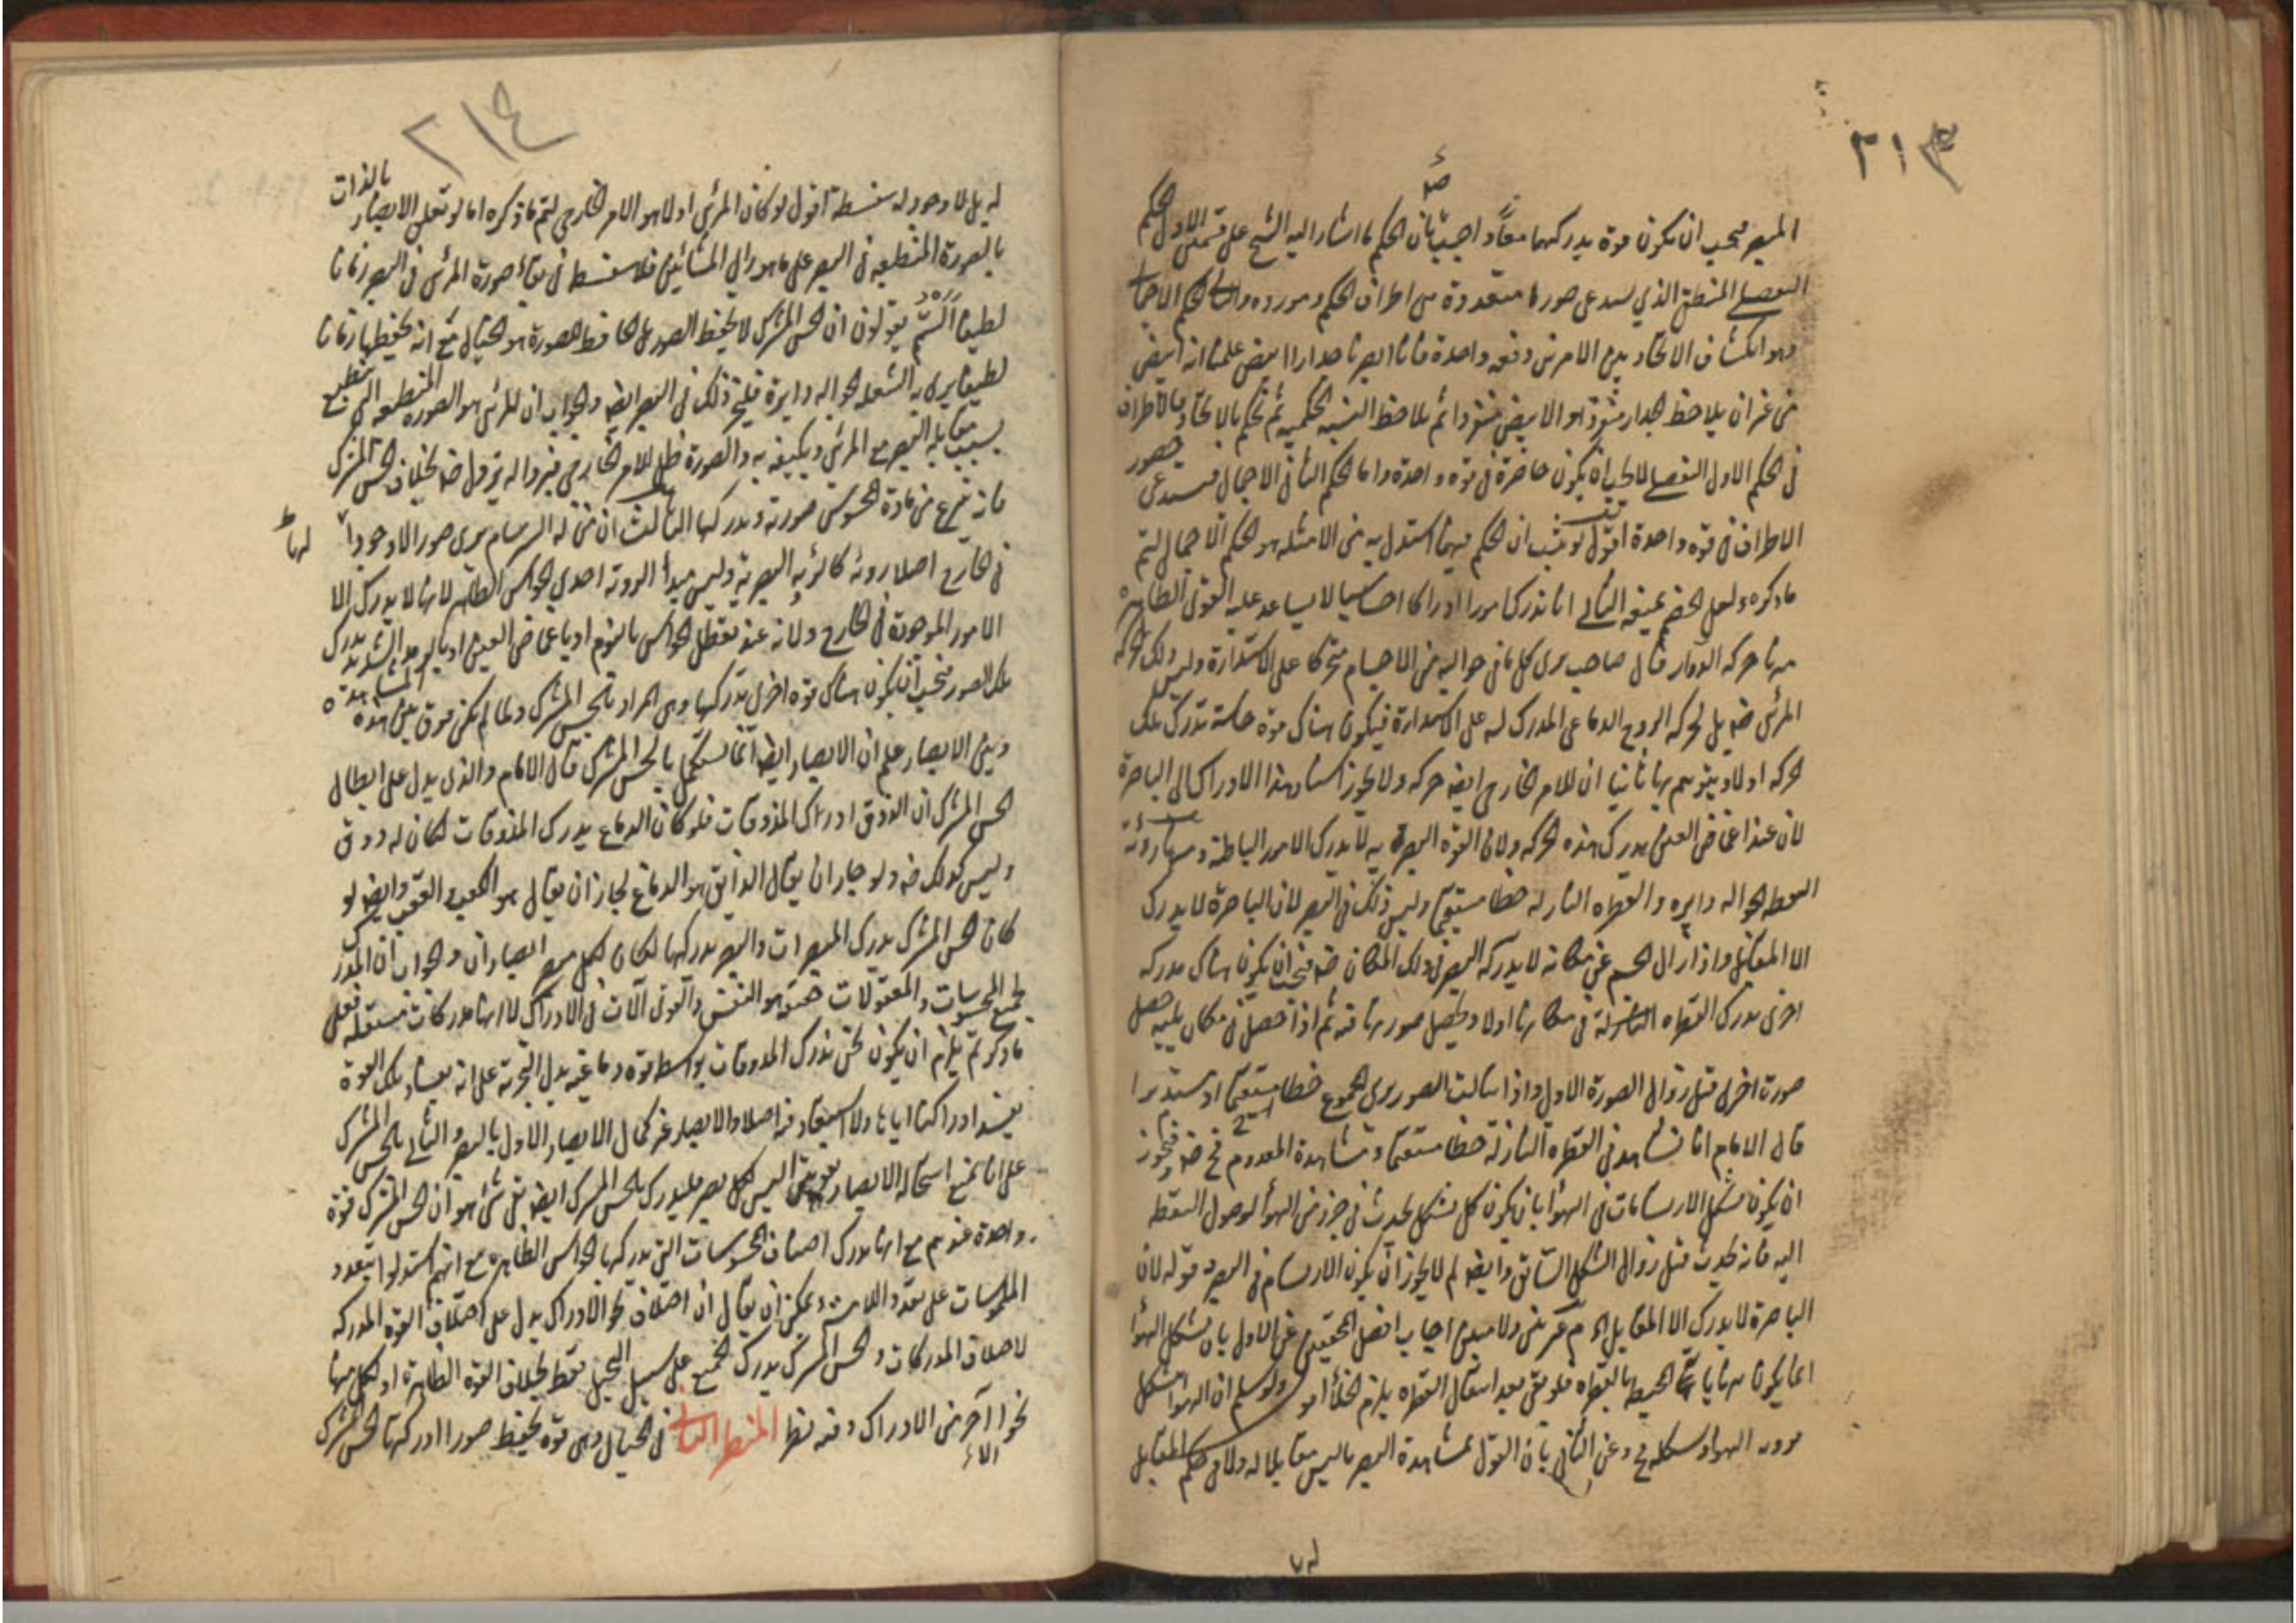 ٢١٣
المبصر فيجب ان يكون قوة يدركهما معاً و اجيب بان الحكم ما اشار اليه الشيخ على قسمين الاول الحكم
التفصيلي المنطقي الذي يستدعي صورا متعددة من اطراف الحكم و مورده والثاني الحكم الاجمالي
وهو انكشاف الاتحاد بين الامرين دفعة واحدة فانا ابصرنا جدارا ابيض علمنا انه ابيض
من غير ان يلاحظ الجدار منفردا و الابيض منفردا ثم يلاحظ النسبة الحكمية ثم نحكم بالاتحاد فالاطراف
في الحكم الاول التفصيلي لا يجب ان يكون حاضرة في قوة واحدة واما الحكم الثاني الاجمالي فيستدعي حضور
الاطراف في قوة واحدة اقول لو ثبت ان الحكم فيما استدل به من الامثلة هو الحكم الاجمالي لتم
ما ذكره ولعل الخصم يمنعه الثاني انا ندرك امورا ادراكا احساسيا لا يساعد عليه القوى الظاهرة
منها حركة الدوار فان صاحبه يرى كل ما في حواليه من الاجسام متحركا على الاستدارة وليس ذلك لحركة
المرئي ضه بل لحركة الروح الدماغي المدرك له على الاستدارة فيكون هناك قوة حاسة تدرك تلك
الحركة اولا و يتوهم بها ثانيا ان للامر الخارجي ايضا حركة ولا يجوز اسناد هذا الادراك الى الباصرة
لان عند اغماض العين يدرك هذه الحركة ولان القوة البصرية لا يدرك الامور الباطنة و منها رؤية
النقطة الجوالة دايرة والقطرة النازلة خطا مستقيما وليس ذلك في البصر لان الباصرة لا يدرك
الا المقابل و اذا زال الجسم عن مكانه لا يدركه البصر في ذلك المكان ضه فيجب ان يكون هناك مدركة
اخرى يدرك القطرة النازلة في مكانها اولا و يحصل صورتها فيه ثم اذا حصل في مكان يليه حصل
صورة اخرى قبل زوال الصورة الاولى و اذا تتالت الصور يرى المجموع خطا مستقيما او مستديرا
قال الامام انا نشاهد في القطرة النازلة خطا مستقيما و مشاهدة المعدوم مح ضه فيجوز
ان يكون تشكل الارتسامات في الهوا بان يكون كل تشكل يحدث في جزء من الهوا لوصول النقطة
اليه فانه يحدث قبل زوال الشكل السابق وايضه لم لا يجوز ان يكون الارتسام في البصر و قوله لان
الباصرة لا يدرك الا المقابل الخ م غير بين ولا مبين اجاب افضل المحققين عن الاول بان تشكل الهوا
انما يكون بنهاياته المحيطة بالقطرة فلو بقي بعد انتقال القطرة يلزم الخلأ ولو سلم ان الهوا تشكل
مرور الهوا و شكله مح و عن الثاني بان القول بمشاهدة البصر ما ليس مقابلا له ولا في حكم المقابل
له بل
٢١٤
له بل لا وجود له سفسطة اقول لو كان المرئي اولا هو الامر الخارجي لتم ما ذكره اما لو تعلق الابصار بالذات
بالصورة المنطبعة في البصر على ما هو راي المشائين فلا سفسطة في بقاء صورة المرئي في البصر زمانا
لطيفا الستم يقولون ان الحس المشترك لا يحفظ الصور بل الحافظ للصورة هو الخيال مع انه يحفظها زمانا
لطيفا يرى به الشعلة الجوالة دايرة فليجز ذلك في البصر ايضه والجواب ان المرئي هو الصورة المنطبعة التي تنطبع
بسبب مقابلة البصر مع المرئي و يكيفه به والصورة ظل للامر الخارجي فبزواله يزول ضه بخلاف الحس المشترك
فانه ينزع من مادة المحسوس صورته و يدركها الثالث ان من له السرسام يرى صورا لا وجود لها
في الخارج اصلا رؤية كالرؤية البصرية وليس مبدأ الرؤية احدى الحواس الظاهرة لانها لا يدرك الا
الامور الموجودة في الخارج و لانه عند تعطل الحواس بالنوم او باغماض العين او بالمرض الشديد يدرك
تلك الصور فيجب ان يكون هناك قوة اخرى تدركها وهي المراد بالحس المشترك ولما لم يكن فرق بين هذه المشاهدة
و بين الابصار علم ان الابصار ايضا انما يستكمل بالحس المشترك قال الامام والذي يدل على ابطال
الحس المشترك ان الذوق ادراك المذوقات فلو كان الدماغ يدرك المذوقات لكان له ذوق
وليس كذلك ضه و لو جاز ان يقال الذايق هو الدماغ لجاز ان يقال هو الكعب و العقب وايضه لو
كان الحس المشترك يدرك المبصرات والبصر يدركها لكان لكل مبصر ابصاران والجواب ان المدرك
لجميع المحسوسات و المعقولات ضه هو النفس والقوى آلات في الادراك لا انها مدركات مستقلة فعلى
ما ذكر تم يلزم ان يكون نحن ندرك المذوقات بواسطة قوة دماغية يدل التجربة على انه بفساد تلك القوة
يفسد ادراكنا اياها ولا استبعاد فيه اصلا والابصار غير كمال الابصار والاول بالبصر والثاني بالحس المشترك
على انا نمنع استحالة الابصار بقوتين اليس لكل بصر فليدرك بالحس المشترك ايضه بقي شئ هو ان الحس المشترك قوة
واحدة عندهم مع انها يدرك اصناف المحسوسات التي يدركها الحواس الظاهرة مع انهم استدلوا بتعدد
الملموسات على تعدد اللامسة و يمكن ان يقال ان اختلاف نحو الادراك يدل على اختلاف القوة المدركة
لا اختلاف المدركات و الحس المشترك يدرك الجميع على سبيل التخيل فقط بخلاف القوة الظاهرة اذ لكل منها
نحوا آخر من الادراك و فيه نظر المنظر الثاني في الخيال وهي قوة يحفظ صورا ادركها الحس المشترك